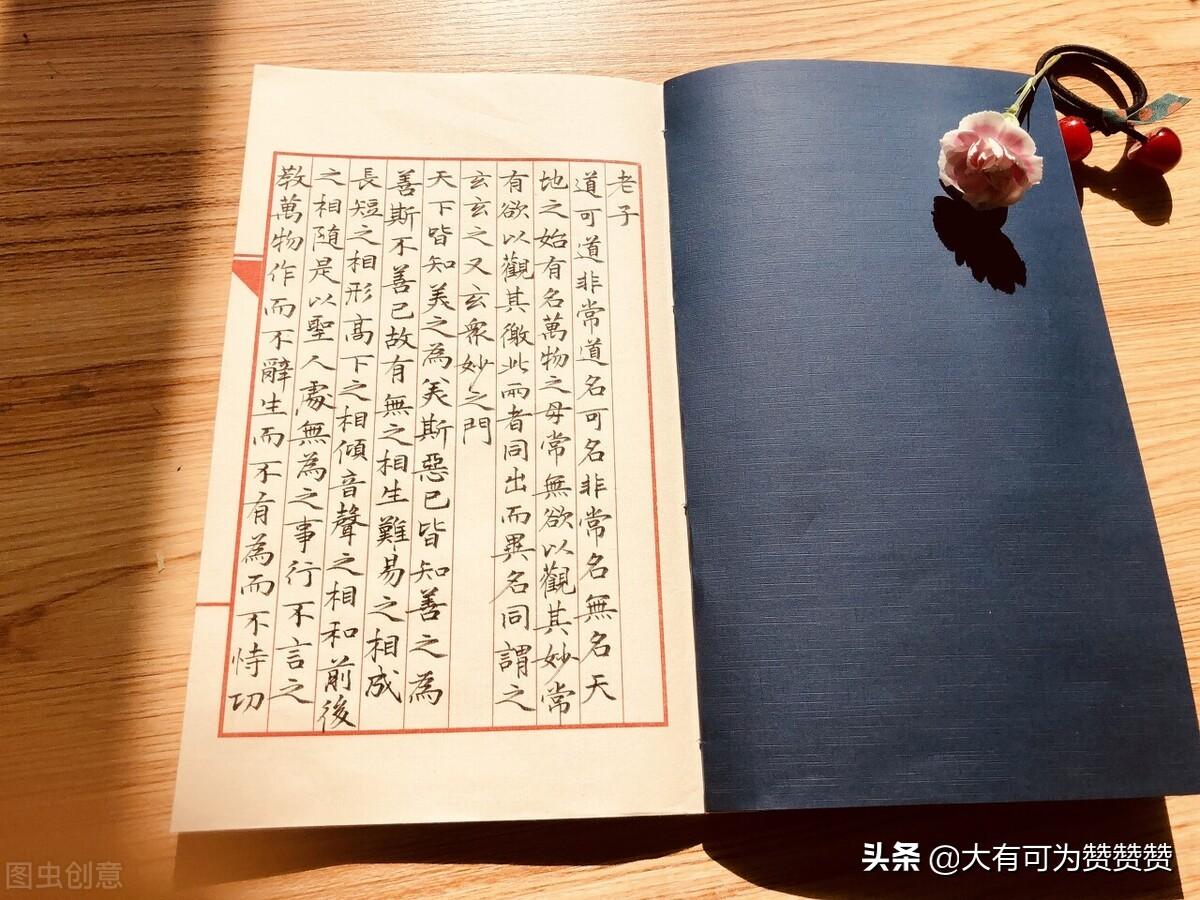 老子
道可道非常道名可名非常名無名天
地之始有名萬物之母常無欲以觀其妙常
有欲以觀其徼此兩者同出而異名同謂之
玄玄之又玄衆妙之門
天下皆知美之為美斯惡已皆知善之為
善斯不善已故有無之相生難易之相成
長短之相形高下之相傾音聲之相和前後
之相隨是以聖人處無為之事行不言之
教萬物作而不辭生而不有為而不恃功
图虫创意
头条 @大有可为赞赞赞